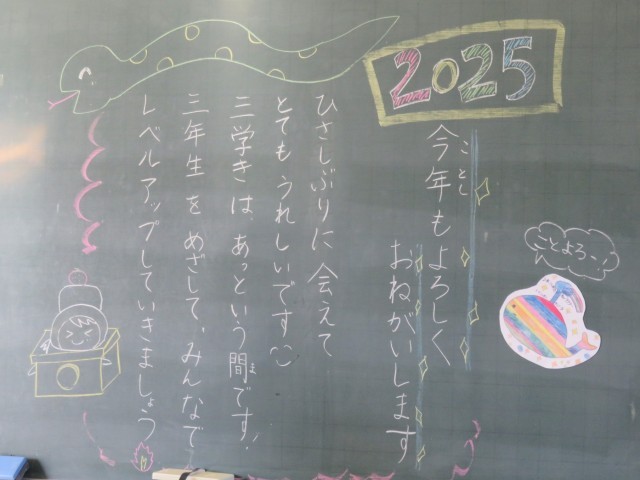 2025
今年もよろしく
ことし
おねがいします
ひさしぶりに会えて
とてもうれしいです
三学きは、あっという間です!
ま
三年生をめざして、みんなで
レベルアップしていきましょう
ことよろ〜!